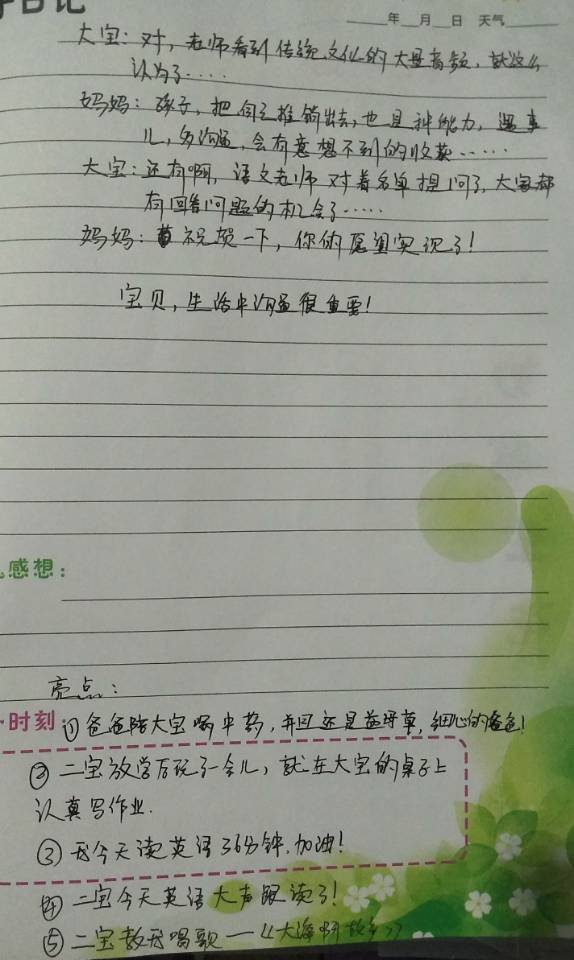 日记
年 月 日 天气
大宝：对，老师看到传统文化的大量音频，就这么
认为了·····
妈妈：孩子，把自己推销出去，也是种能力，遇事
儿，多沟通，会有意想不到的收获······
大宝：还有啊，语文老师对着名单提问了，大家都
有回答问题的机会了·····
妈妈：祝贺一下，你的愿望实现了！
宝贝，生活中沟通很重要！
感想：
亮点：
时刻
①爸爸陪大宝喝中药，并且还是益母草，细心的爸爸！
②二宝放学后玩了一会儿，就在大宝的桌子上
认真写作业.
③我今天读英语36分钟.加油！
④二宝今天英语大声跟读了！
⑤二宝教我唱歌—《大海啊故乡》